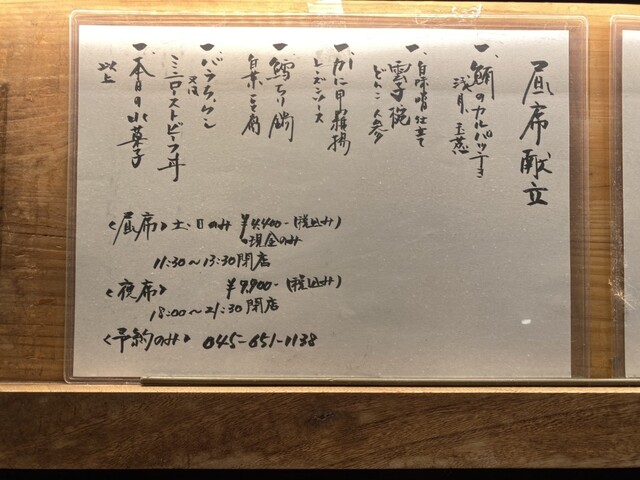 昼席献立
一、鯛のカルパッチョ
浅月 玉葱
一、白味噌仕立て
雲子椀
きんこ人参
一、かに甲羅揚
レーズンソース
一、鱈ちり鍋
白菜 豆腐
一、バラちらし
又は
ミニローストビーフ丼
一、本日の水菓子
以上
〈昼席〉土、日のみ ¥4,400-(税込み)
現金のみ
11:30〜13:30閉店
〈夜席〉 ¥9,900-(税込み)
18:00〜21:30閉店
〈予約のみ〉 045-651-1138